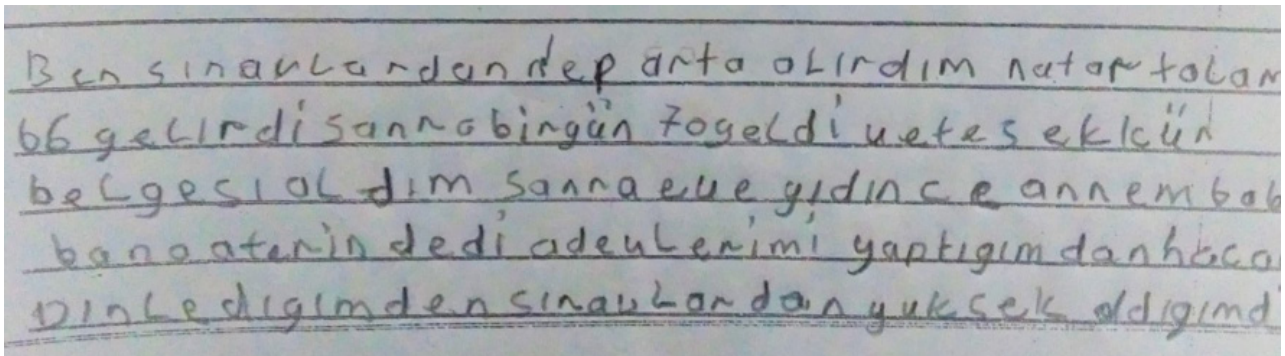 Ben sınavlardan dep orta olırdım notar tolam
66 gelirdi sanra bingün 70 geldi vetes ekkün
belgesi aldım sanra eve gidince annem bab
bano aferin dedi adevlerimi yaptıgım dan hoca
Dinledigimden sınavlardan yuksek aldıgımd